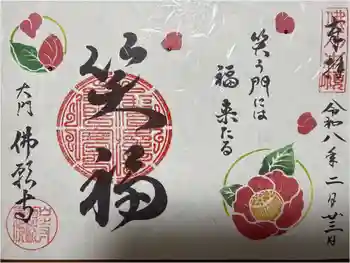 奉拝
令和八年二月廿三日
笑う門には
福
来たる
笑福
大門
佛願寺